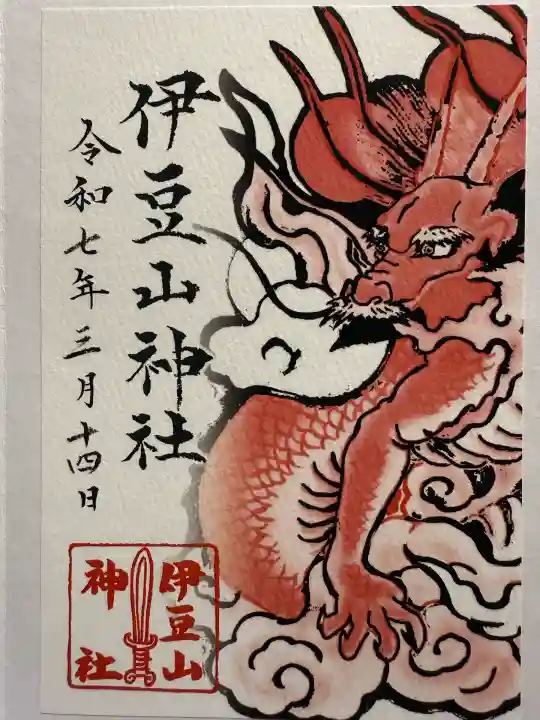 伊豆山神社
令和七年三月十四日
伊豆山
神社